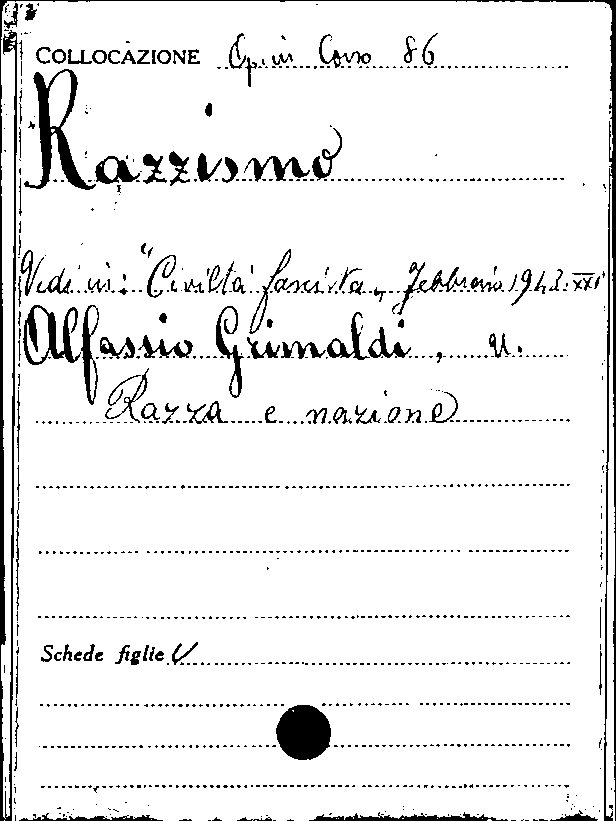 COLLOCAZIONE Op. in Corso 86
Razzismo
Vedi in: "Civiltà fascista„ Febbraio 1943.XXI
Alfassio Grimaldi, U.
Razza e nazione
Schede figlie